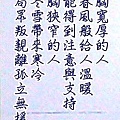 胸寬厚的人
春風般給人溫暖
能得到注意與支持
胸狹窄的人
冬雪帶來寒冷
局眾叛親離孤立無援